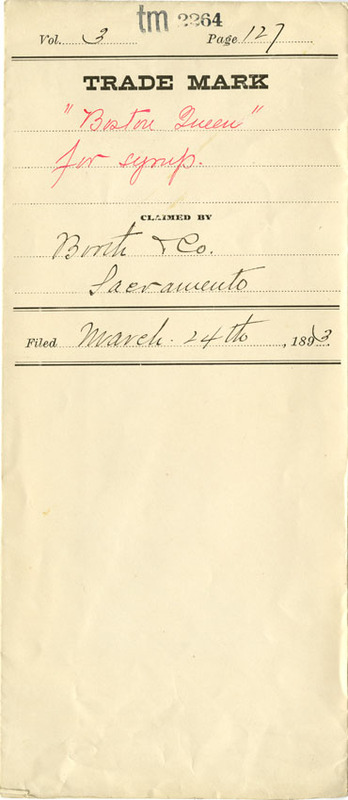 tm 2264
Vol. 3 Page 127
TRADE MARK
"Boston Queen"
for syrup.
CLAIMED BY
Booth & Co.
Sacramento
Filed March 24th, 1893.